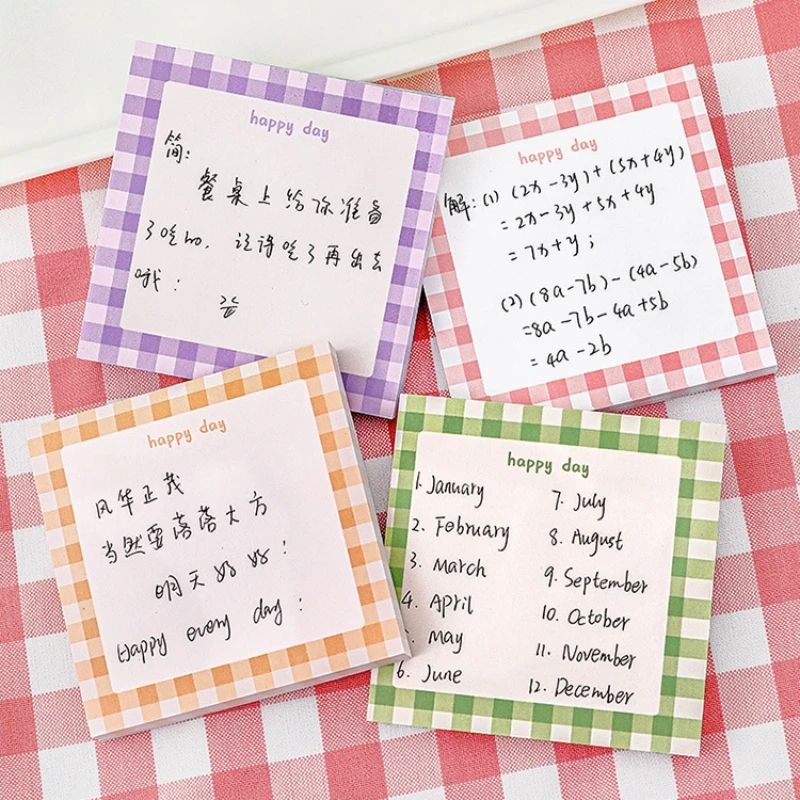 happy day
简:
餐桌上给你准备
了吃的, 记得吃了再出去
哦!
happy day
解:(1) (2x-3y)+(5x+4y)
=2x-3y+5x+4y
=7x+y;
(2) (8a-7b)-(4a-5b)
=8a-7b-4a+5b
=4a-2b
happy day
风华正茂
当然要落落大方
明天好好!
Happy every day!
happy day
1. January
2. February
3. March
4. April
. May
6. June
7. July
8. August
9. September
10. October
11. November
12. December